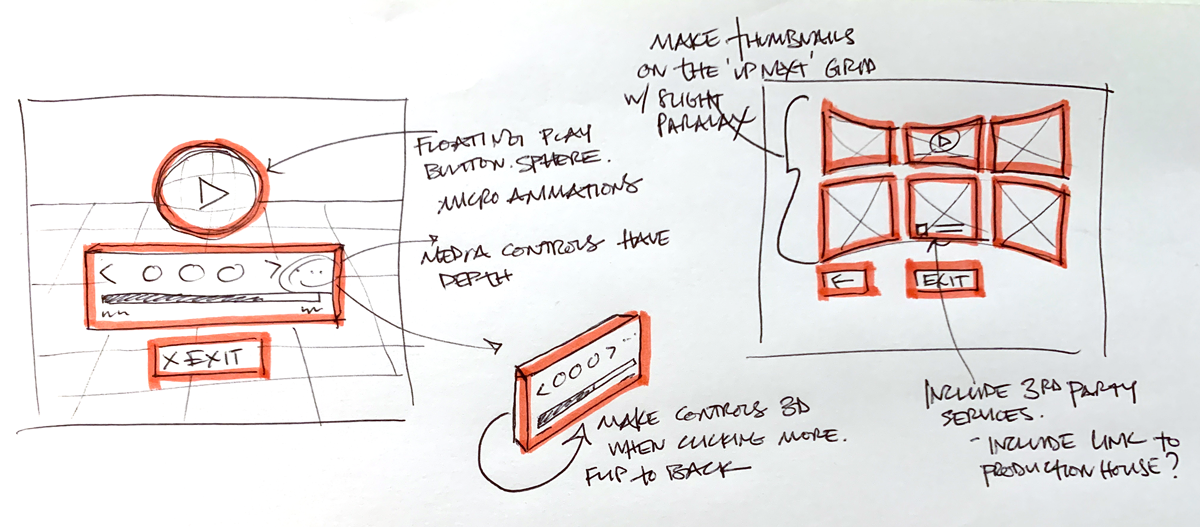 MAKE THUMBNAILS
ON THE 'UP NEXT' GRID
W/ SLIGHT
PARALAX
FLOATING PLAY
BUTTON. SPHERE.
MICRO ANIMATIONS
MEDIA CONTROLS HAVE
DEPTH
X EXIT
MAKE CONTROLS 3D
WHEN CLICKING MORE.
FLIP TO BACK
EXIT
INCLUDE 3RD PARTY
SERVICES.
- INCLUDE LINK TO
PRODUCTION HOUSE?